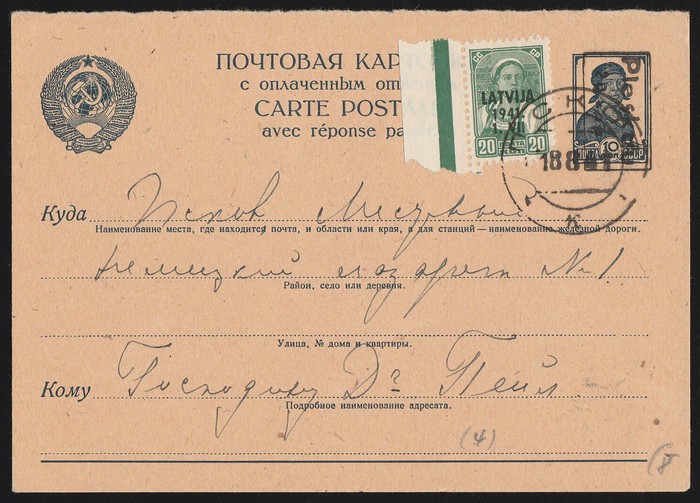 ПОЧТОВАЯ КАР
с оплаченным от
CARTE POSTAL
avec réponse pa
СССР
LATVIJA
1941
1. VII
20 20
Pleskau
10
ПОЧТА СССР
18 8 41
К
Куда Псков Местный
Наименование места, где находится почта, и области или края, а для станций — наименование железной дороги.
Немецкий лазарет №1
Район, село или деревня.
Улица, № дома и квартиры.
Кому Господину Dr Пейл
Подробное наименование адресата.
(4)
(8